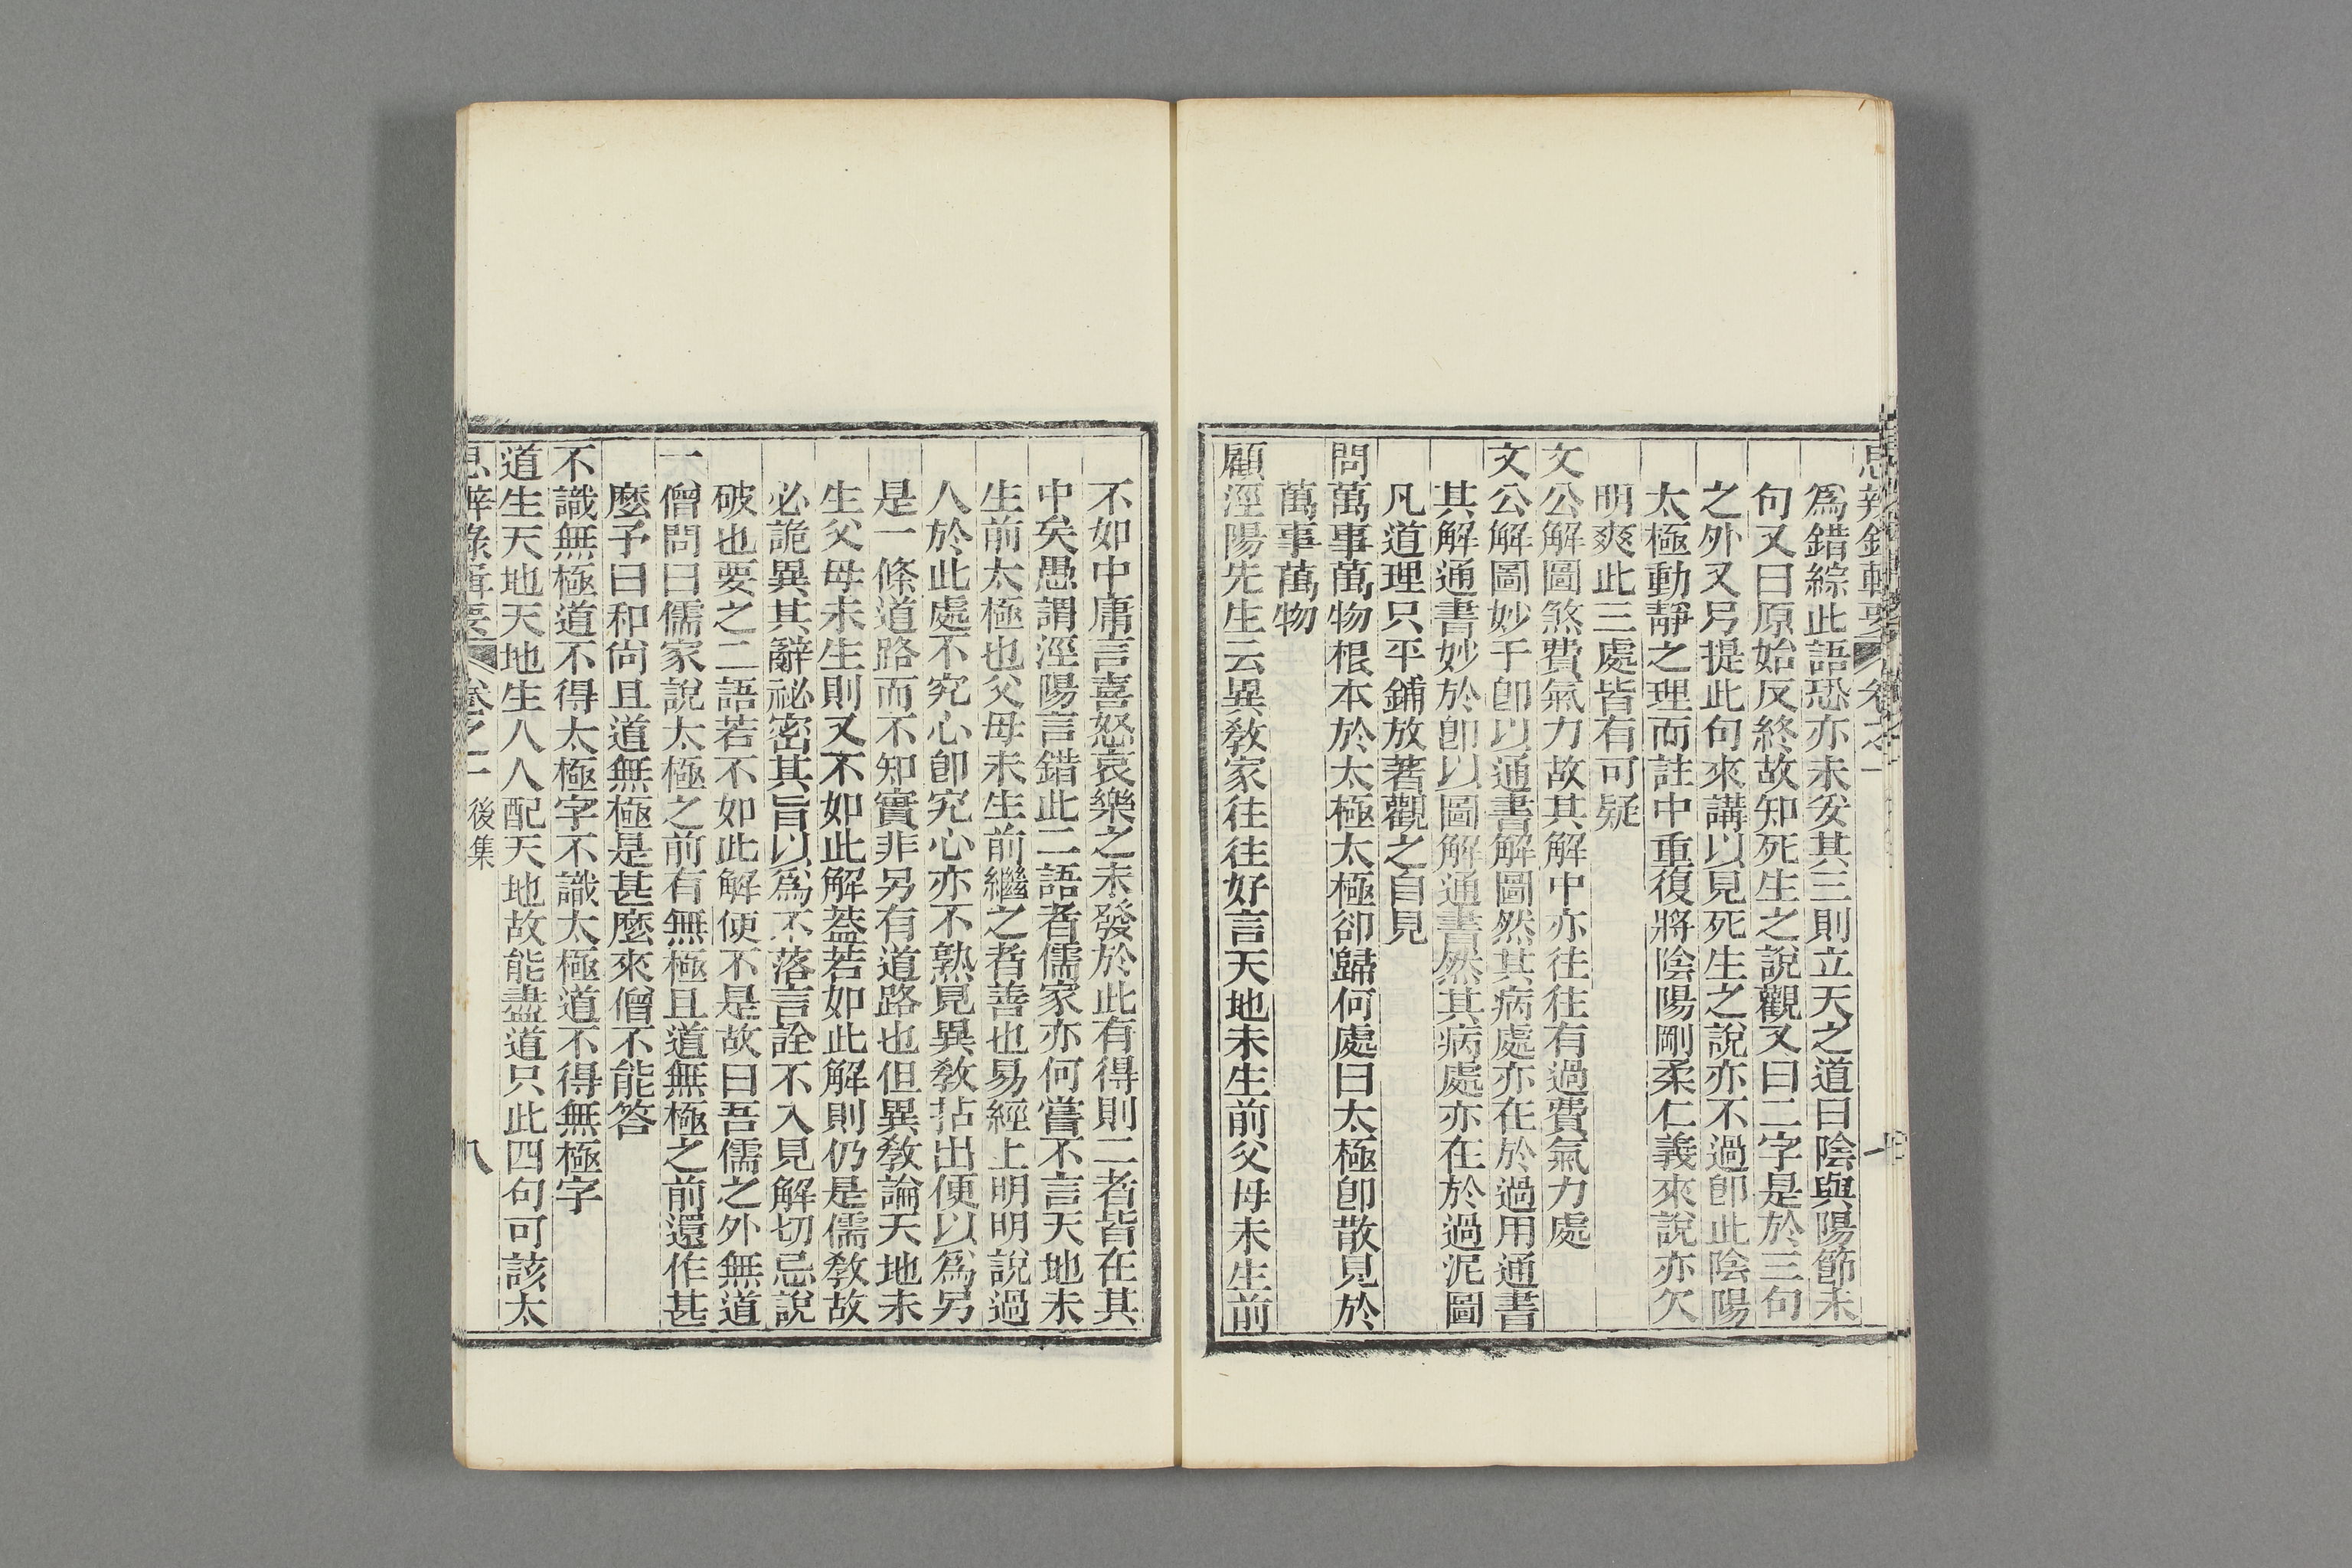 為錯綜此語恐亦未安其三則立天之道曰陰與陽節未
句又曰原始反終故知死生之說觀又曰二字是於三句
之外又另提此句來講以見死生之說亦不過卽此陰陽
太極動靜之理而註中重復將陰陽剛柔仁義來說亦欠
明爽此三處皆有可疑
文公解圖煞費氣力故其解中亦往往有過費氣力處
文公解圖妙于卽以通書解圖然其病處亦在於過用通書
其解通書妙於卽以圖解通書然其病處亦在於過泥圖
凡道理只平鋪放著觀之自見
問萬事萬物根本於太極太極卻歸何處曰太極卽散見於
萬事萬物
顧涇陽先生云異教家往往好言天地未生前父母未生前
不如中庸言喜怒哀樂之未發於此有得則二者皆在其
中矣愚謂涇陽言錯此二語者儒家亦何嘗不言天地未
生前太極也父母未生前繼之者善也易經上明明說過
人於此處不究心卽究心亦不熟見異教拈出便以為另
是一條道路而不知實非另有道路也但異教論天地未
生父母未生則又不如此解蓋若如此解則仍是儒教故
必詭異其辭祕密其旨以為不落言詮不入見解切忌說
破也要之二語若不如此解便不是故曰吾儒之外無道
一僧問曰儒家說太極之前有無極且道無極之前還作甚
麼予曰和尙且道無極是甚麼來僧不能答
不識無極道不得太極字不識太極道不得無極字
道生天地天地生人人配天地故能盡道只此四句可該太
思辨錄輯要 卷之一 後集 八